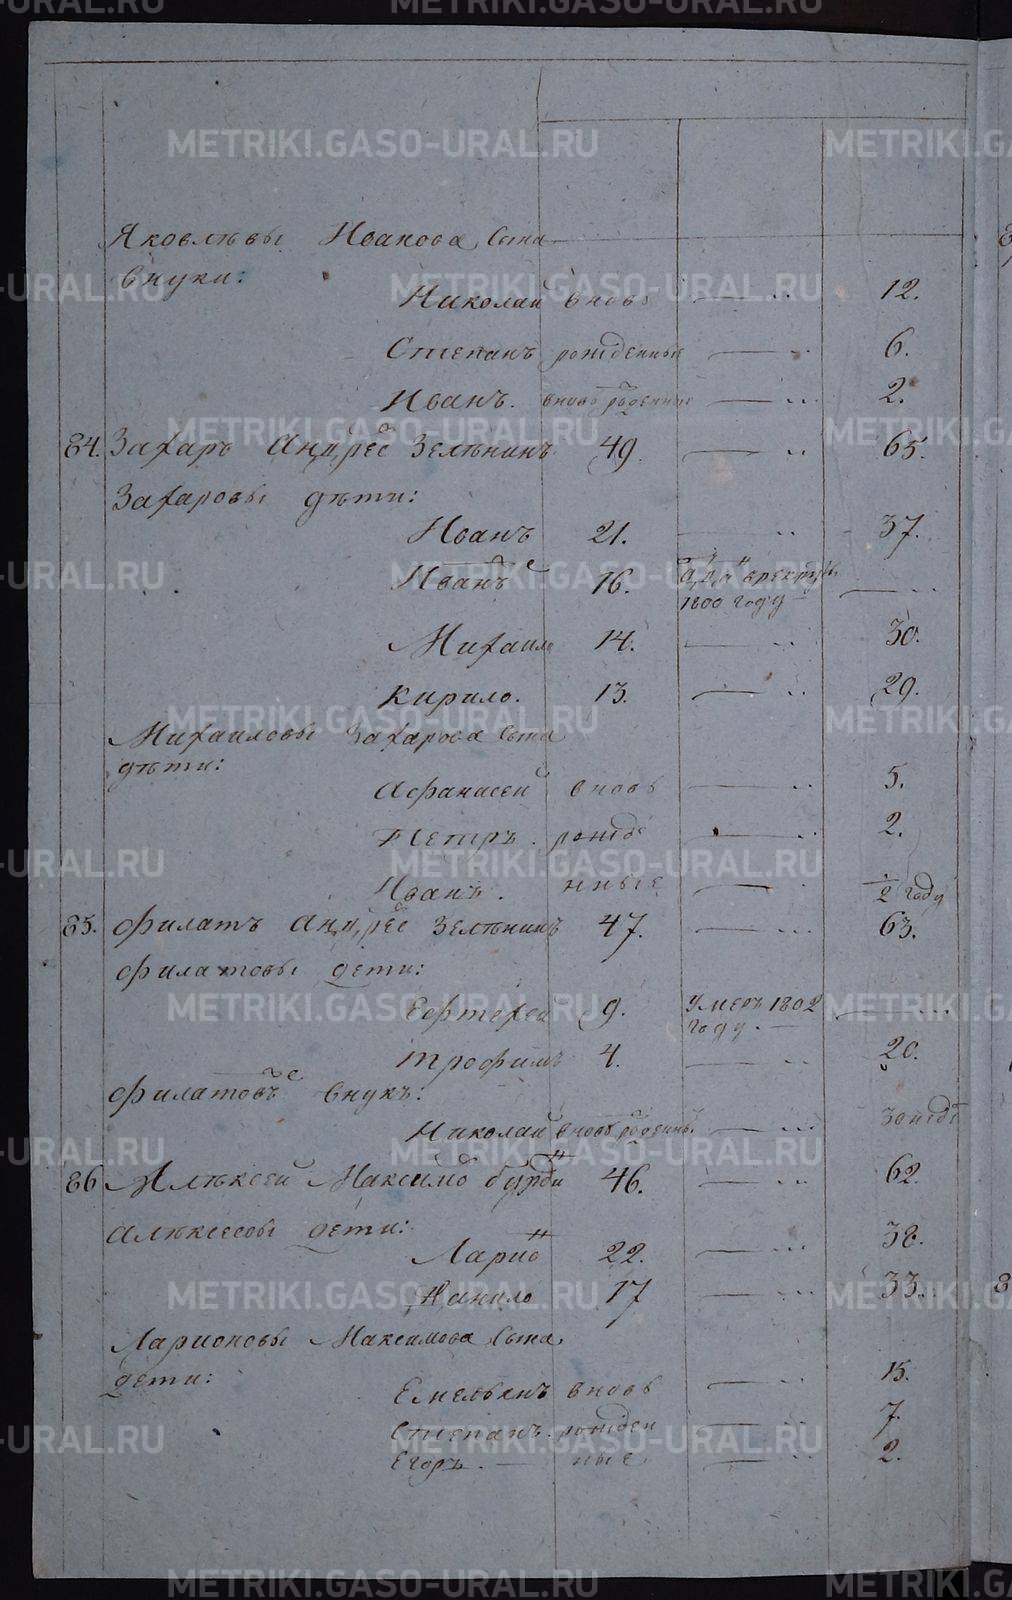 Яковлѣвы Иванова сына
внуки:
Николай вновь — .. 12.
Степанъ рожденныи — .. 6.
Иванъ. вновь рожденныи — ... 2.
84. Захаръ Андрес Зелѣнинъ 49. — .. 65.
Захаровы дѣти:
Иванъ 21. — .. 37.
Иванъ 16. — ...
1800 году
Михаило 14. — .. 30.
Кирило. 13. — .. 29.
Михаиловы Захарова сына
дѣти:
Афанасеи вновь — .. 5.
Петръ. рожде — .. 2.
Иванъ. нные — .. 1/2 году
85. Филатъ Андрес Зелѣнинъ 47. — ... 63.
Филатовы дети:
9. Умеръ 1802 — ...
году. —
Трофимъ 4. — .. 20.
Филатовъ внукъ:
Николай вновь рожденны — ...
86 Алѣксеи Максимо 46. — ... 62.
Алѣксеевы дети:
Ларио 22. — ... 38.
Данило 17 — ... 33.
Ларионовы Максимова сына
дети:
Емельянъ вновь — ... 15.
Степанъ. рожден — ... 7.
Егоръ. — ные. — ... 2.
METRIKI.GASO-URAL.RU